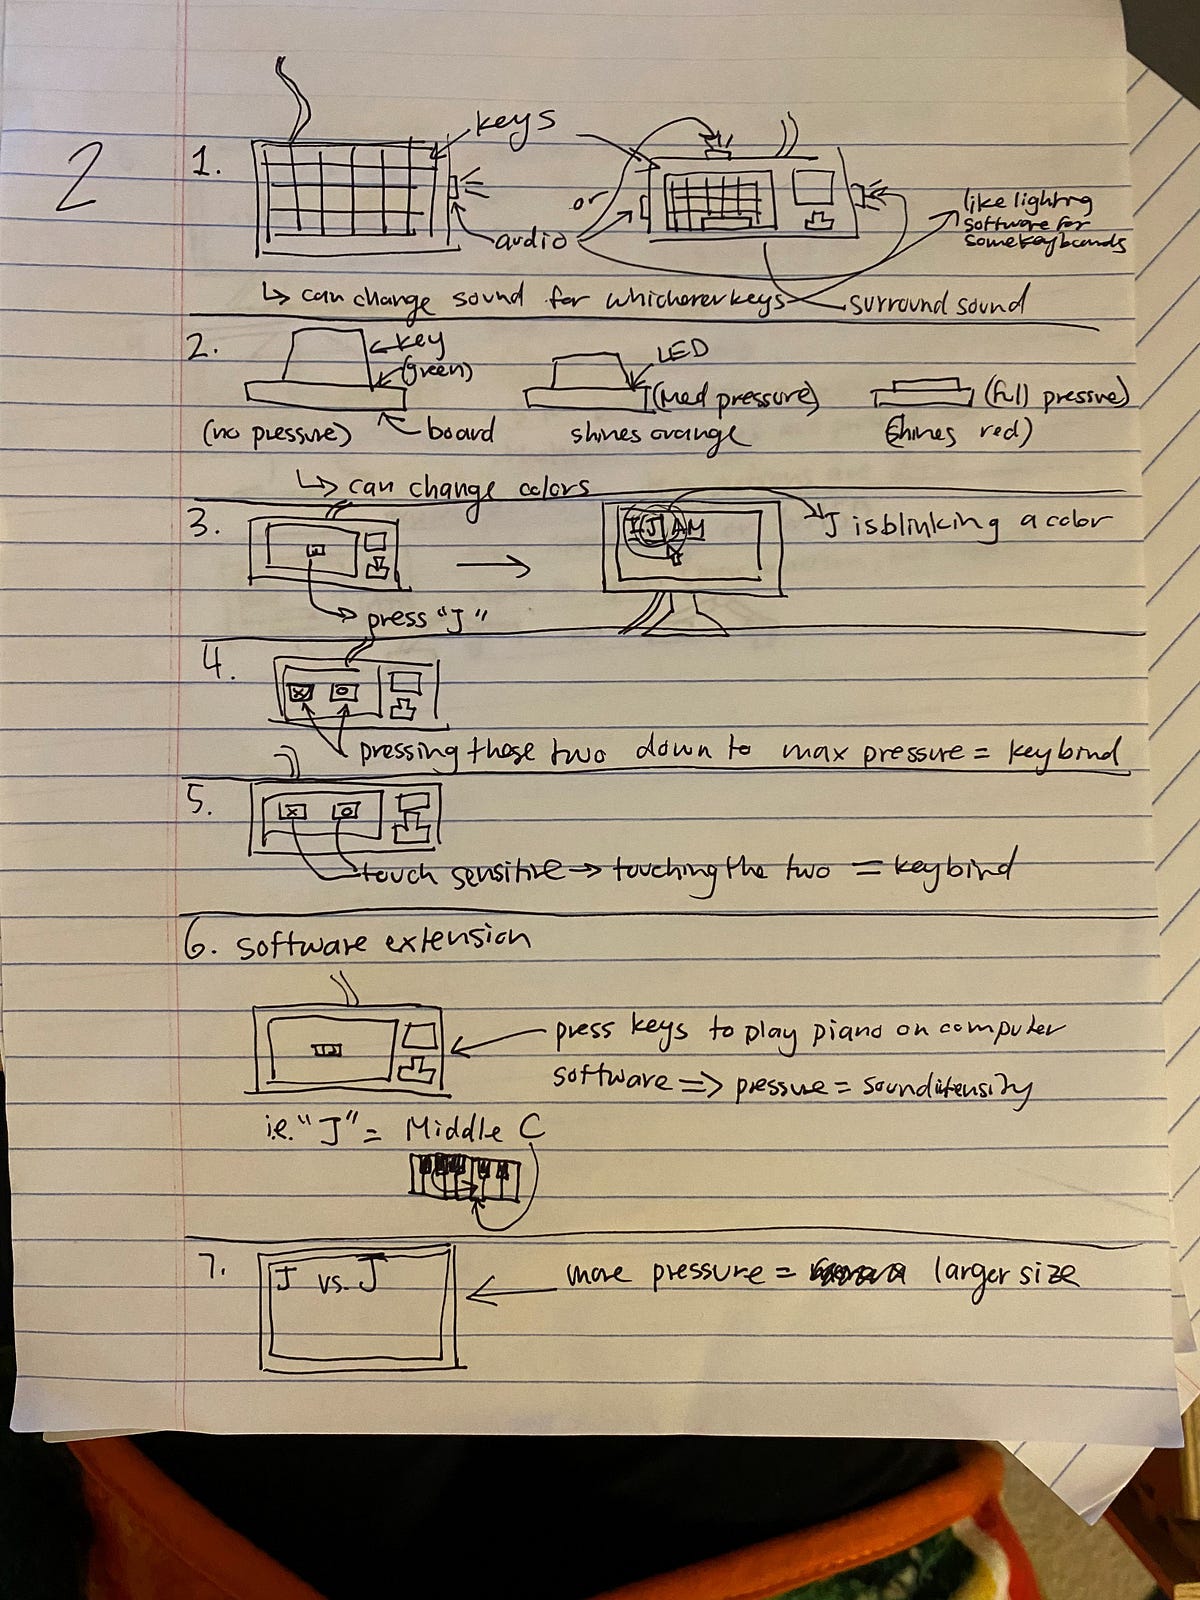 2
1.
keys
or
audio
like lighting
software for
some keyboards
↳ can change sound for whichever keys
surround sound
2.
key
(green)
LED
(med pressure)
(full pressure)
(no pressure)
board
shines orange
(shines red)
↳ can change colors
3.
J
AM
J is blinking a color
press "J"
4.
X O
pressing these two down to max pressure = keybind
5.
X O
touch sensitive → touching the two = keybind
6. software extension
press keys to play piano on computer
software => pressure = sound itensity
i.e. "J" = Middle C
7.
J vs. J
more pressure = larger size